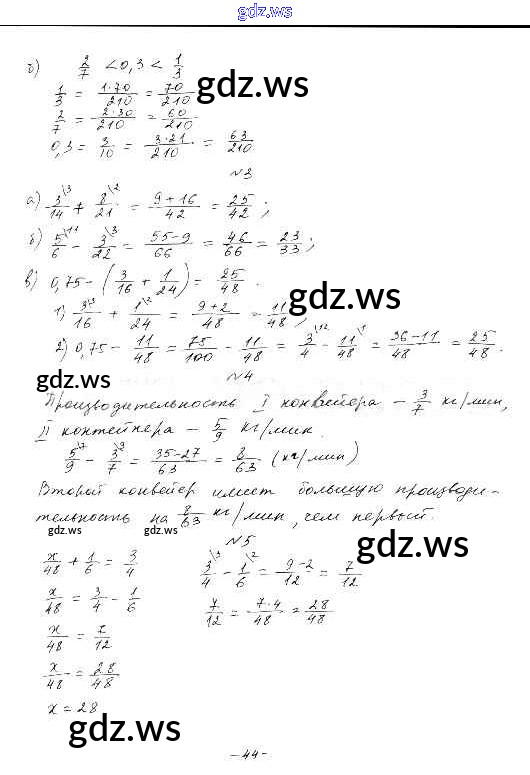 gdz.ws
б) 2/7 < 0,3 < 1/3
1/3 = 1·70/210 = 70/210
gdz.ws
2/7 = 2·30/210 = 60/210
0,3 = 3/10 = 3·21/210 = 63/210
№3
а) 3\3/14 + 8\2/21 = 9+16/42 = 25/42;
gdz.ws
б) 5\11/6 - 3\3/22 = 55-9/66 = 46/66 = 23/33;
в) 0,75 - (3/16 + 1/24) = 25/48.
1) 3\3/16 + 1\2/24 = 9+2/48 = 11/48;
gdz.ws
2) 0,75 - 11/48 = 75/100 - 11/48 = 3\12/4 - 11\1/48 = 36-11/48 = 25/48.
gdz.ws
№4
Производительность I конвейера - 3/7 кг/мин,
II контейнера - 5/9 кг/мин.
5\7/9 - 3\9/7 = 35-27/63 = 8/63 (кг/мин)
Второй конвейер имеет большую производи-
тельность на 8/63 кг/мин, чем первый.
gdz.ws gdz.ws
№5
gdz.ws
x/48 + 1/6 = 3/4
3\3/4 - 1\2/6 = 9-2/12 = 7/12
x/48 = 3/4 - 1/6
7/12 = 7·4/48 = 28/48
x/48 = 7/12
x/48 = 28/48
x = 28
gdz.ws
gdz.ws
- 44 -